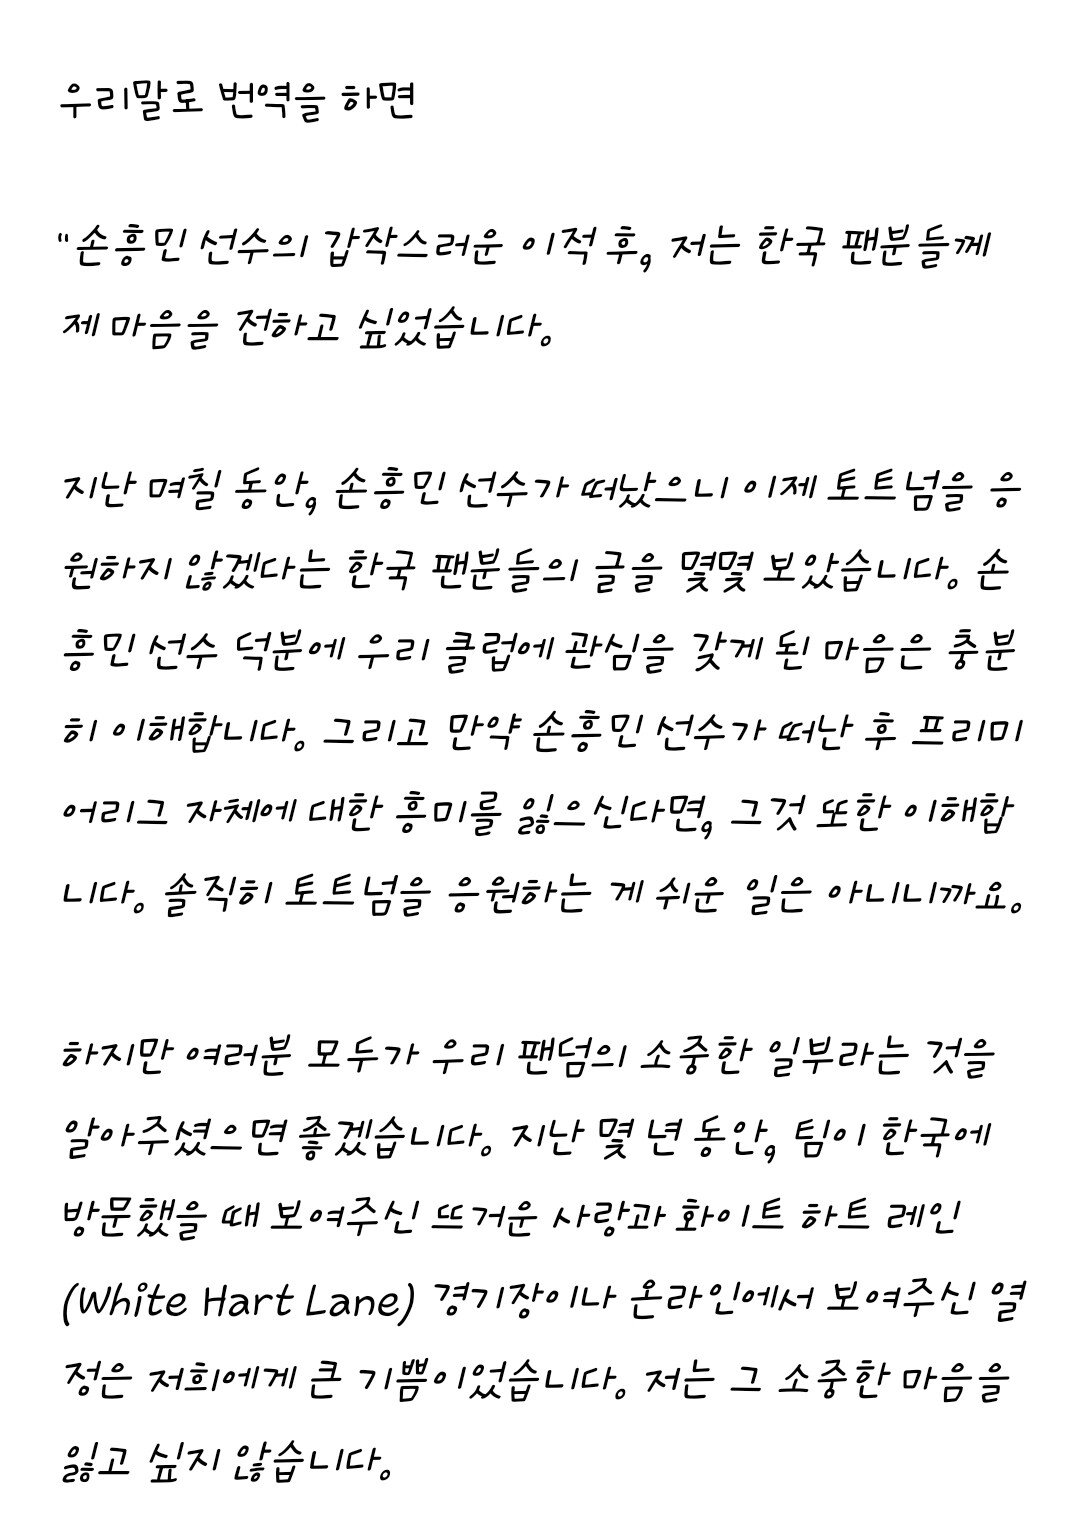 우리말로 번역을 하면
"손흥민 선수의 갑작스러운 이적 후, 저는 한국 팬분들께
제 마음을 전하고 싶었습니다.
지난 며칠 동안, 손흥민 선수가 떠났으니 이제 토트넘을 응
원하지 않겠다는 한국 팬분들의 글을 몇몇 보았습니다. 손
흥민 선수 덕분에 우리 클럽에 관심을 갖게 된 마음은 충분
히 이해합니다. 그리고 만약 손흥민 선수가 떠난 후 프리미
어리그 자체에 대한 흥미를 잃으신다면, 그것 또한 이해합
니다. 솔직히 토트넘을 응원하는 게 쉬운 일은 아니니까요.
하지만 여러분 모두가 우리 팬덤의 소중한 일부라는 것을
알아주셨으면 좋겠습니다. 지난 몇 년 동안, 팀이 한국에
방문했을 때 보여주신 뜨거운 사랑과 화이트 하트 레인
(White Hart Lane) 경기장이나 온라인에서 보여주신 열
정은 저희에게 큰 기쁨이었습니다. 저는 그 소중한 마음을
잃고 싶지 않습니다.